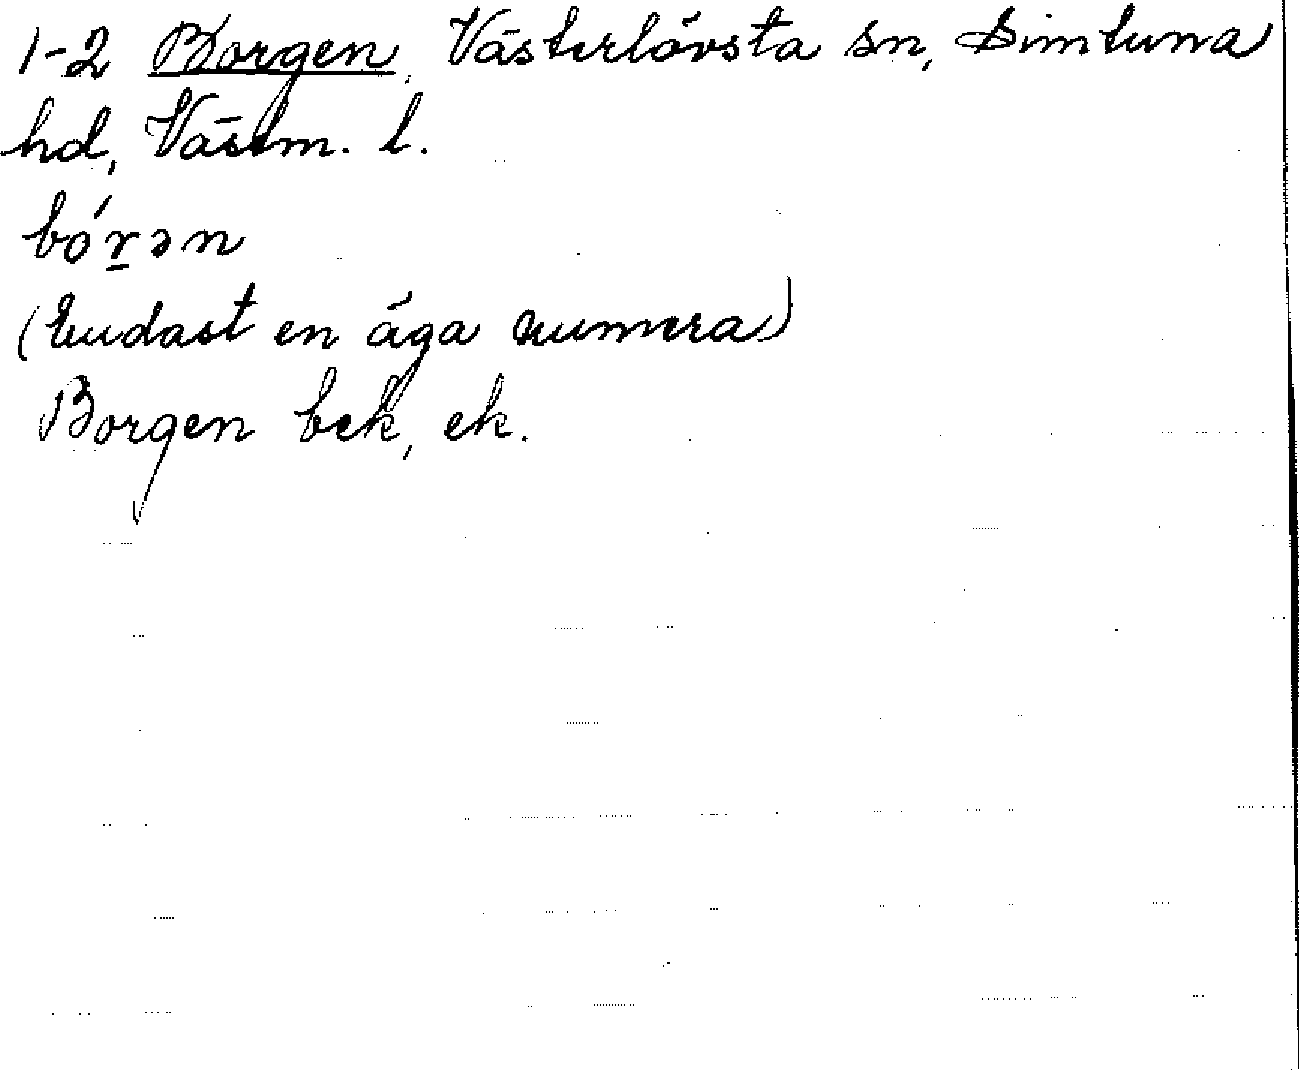 1-2 Borgen, Västerlövsta sn, Simtuna
hd, Västm. l.
bó́r̲ən
(Endast en äga numera)
Borgen bek, ek.